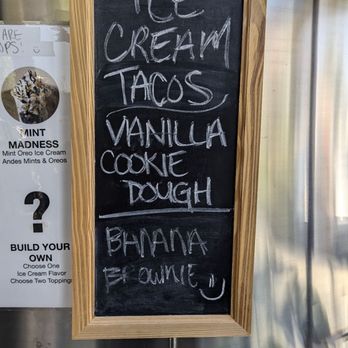 ARE
OPS!
MINT
MADNESS
Mint Oreo Ice Cream
Andes Mints & Oreos
?
BUILD YOUR
OWN
Choose One
Ice Cream Flavor
Choose Two Topping
ICE
CREAM
TACOS
VANILLA
COOKIE
DOUGH
BANANA
BROWNIE